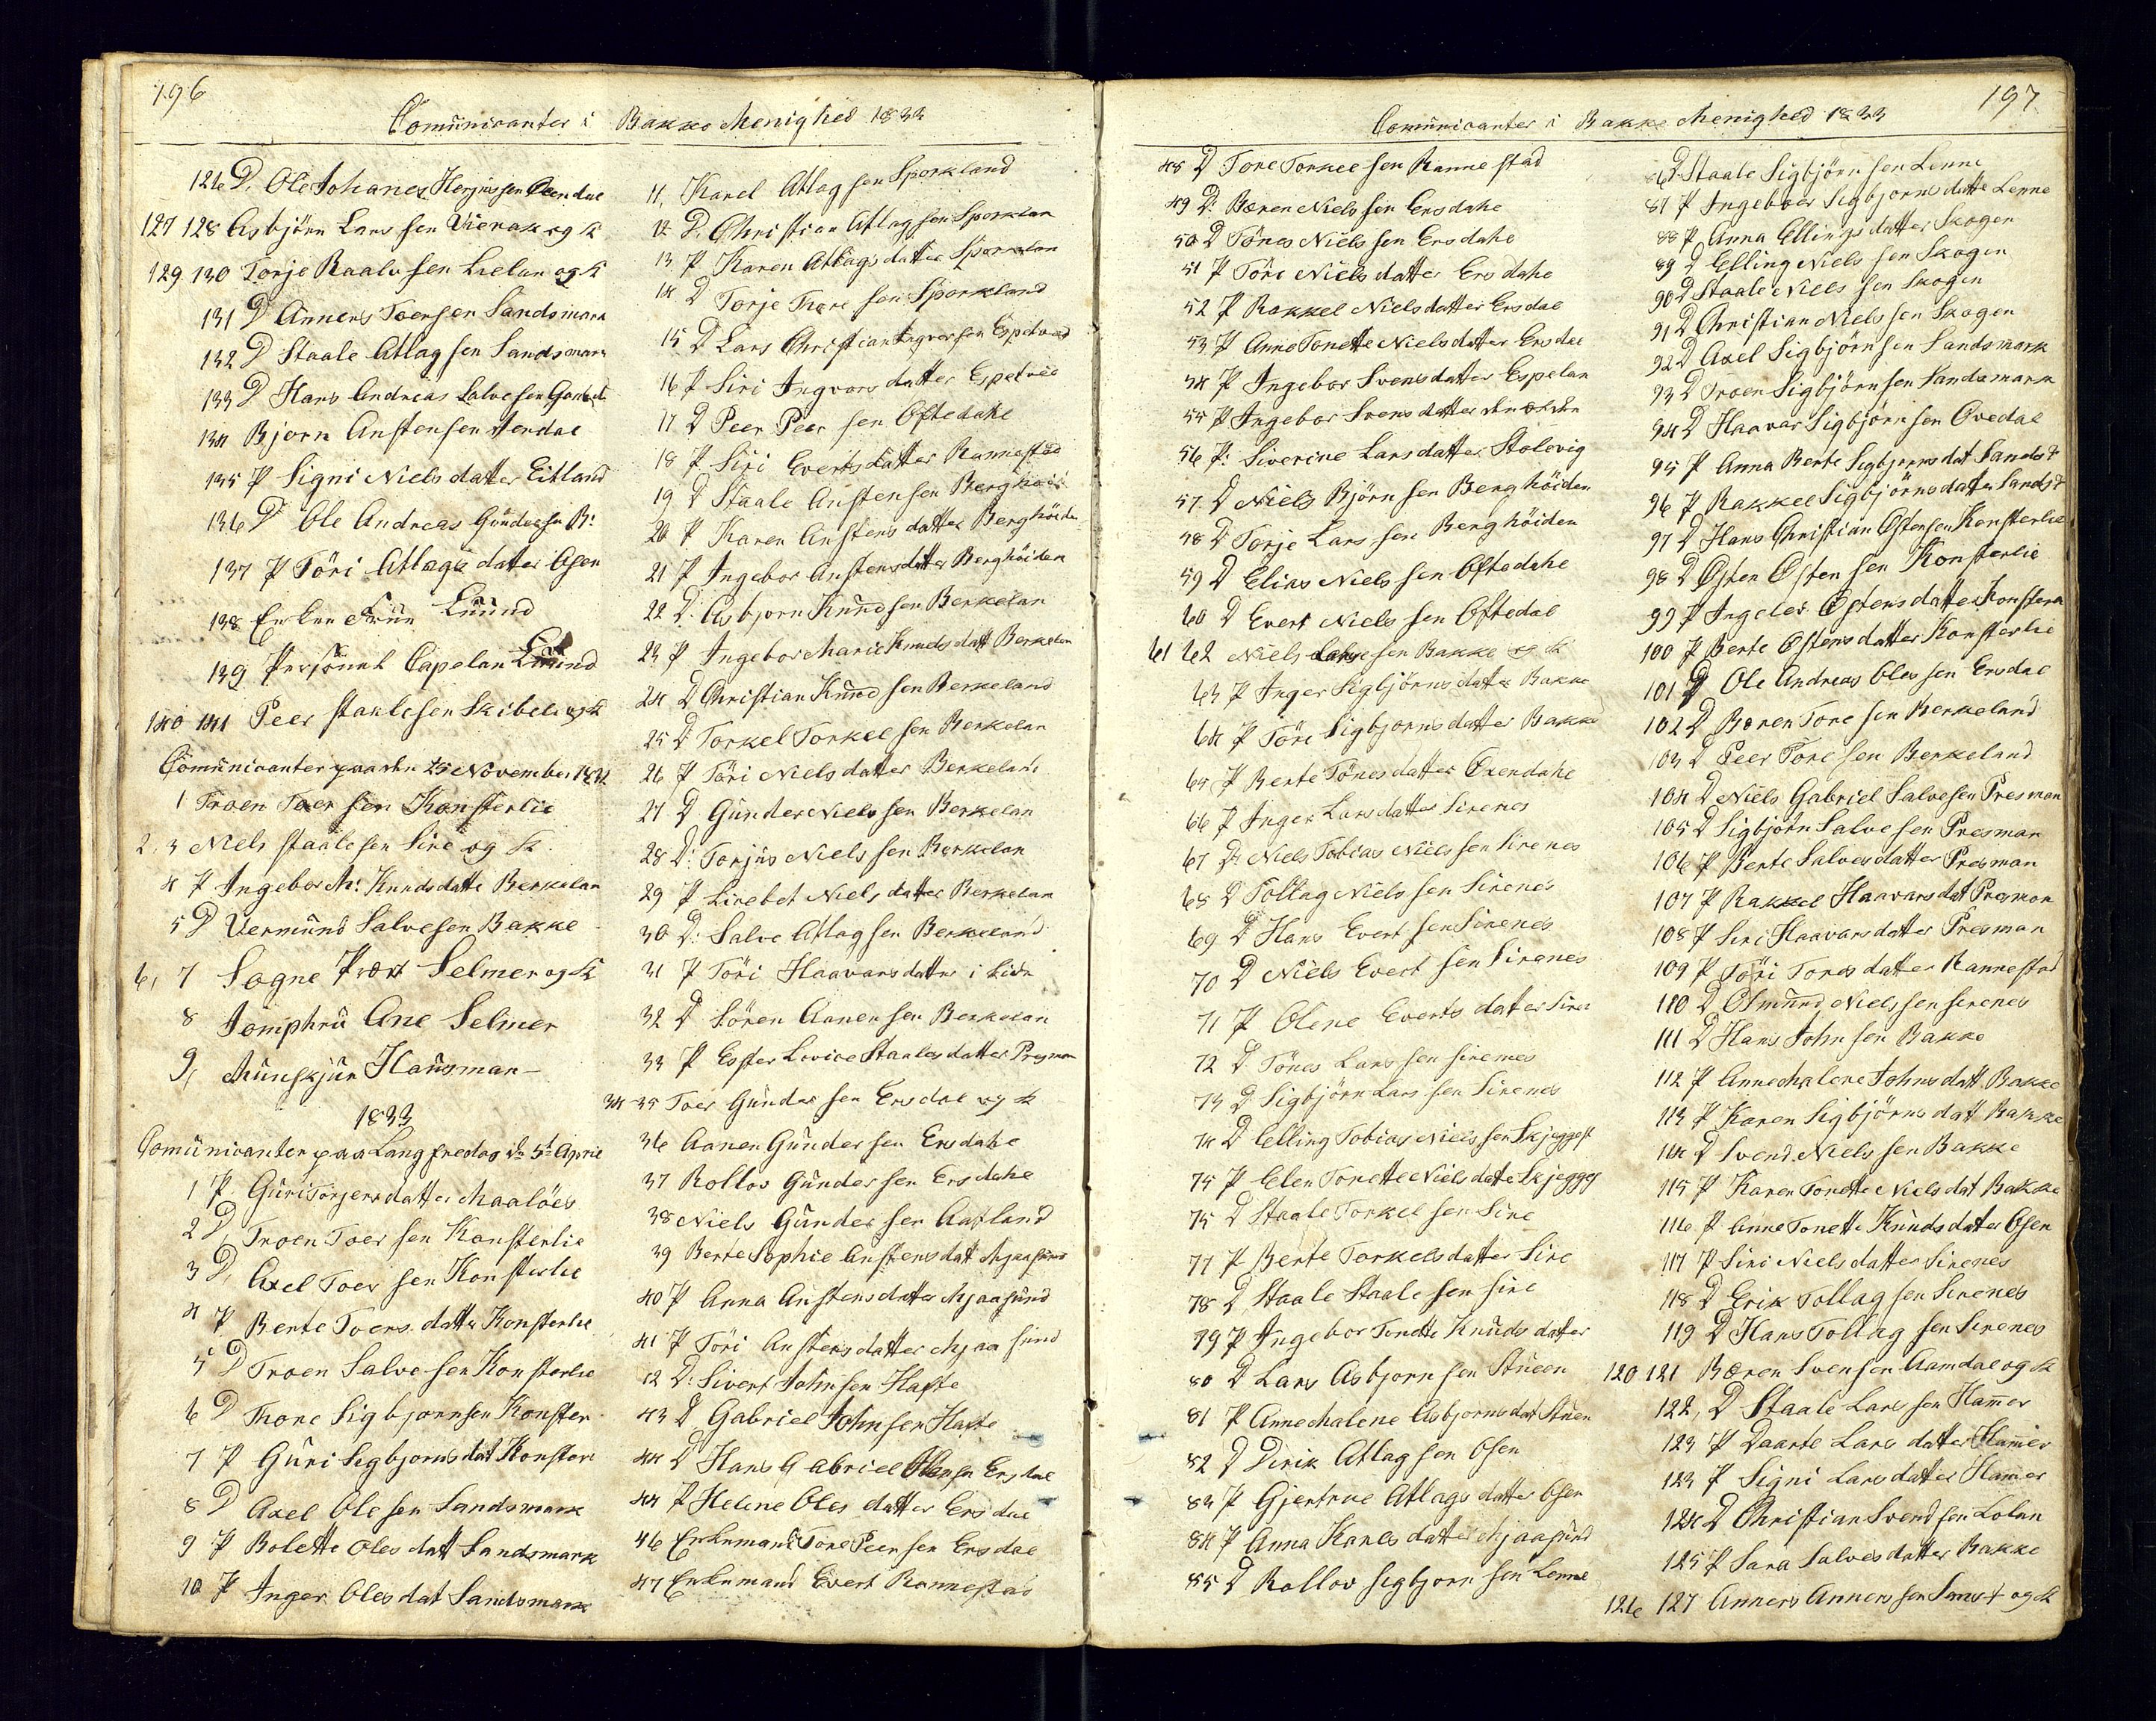 196
Comunicanter i Bakke Menighed 1833
126 D. Ole Johanes Herjussen
127 128 Asbjörn Lars sen og K
129 130 Torje Raalv sen Lielan og K
131 D Anners Toersen Sandsmark
132 D Staale Atlag sen Sandsmark
133 D Hans Andreas Salvesen
134 Bjorn Austensen
135 P Signi Niels datter Eitland
136 D Ole Andreas Gundersen B:
137 P Töri Atlags datter Osen
138 Enken Früe Lüünd
139 Personnel Capelan Lund
140 141 Peer staalesen Skibeli og K
Comunicanter paa den 25 November 1832
1 Troen Toer sen Konsterlie
2. 3 Niels staalesen Sire og K.
4 P Ingebor M: Knudsdatte Berkelan
5 D Vermund Salvesen Bakke
6, 7 Sogne Præst Selmer og K
8 Jomphru Ane Selmer
9, Münskjür Hausman -
1833
Comunicanter paa Langfredag d 5t April
1 P Guri Torjersdatter Maalöes
2 D, Troen Toer sen Konsterlie
3 D, Axel Toer sen Konsterlie
4 P Berte Toers datter Konsterlie
5 D Troen Salve sen Konsterlie
6 D Thore Sigbjornsen Konster
7 P Guri Segbjorns dat Konster
8 D Axel Ole sen Sandsmark
9 P Bolette Oles datt Sandsmark
10 P Inger Oles dat Sandsmark
11, Karel Atlag sen Sporkland
12 D. Christian Atlag sen Sporklan
13 P Karen Atlags datter Sporklan
14 D Torje Thore sen Sporkland
15 D Lars Christian Ingversen Espetved
16 P Siri Ingvors datter Espetvee
17 D Peer Peer sen Oftedahl
18 P Siri Everts datter Rannestad
19 D Staale Austensen Berghöi
20 P Karen Austens datter Berghöiden
21 P Ingebor Austensdatter Berghöiden
22 D. Asbjorn Knudsen Berkelan
23 P Ingebor Marie Knuds datt Berkelan
24 D Christian Knud sen Berkeland
25 D Torkel Torkel sen Berkelan
26 P Töri Niels datter Berkelan
27 D Gunder Niels sen Berkelan
28 D: Torjus Niels sen Berkelan
29 P Lisebet Niels datter Berkelan
30 D: Salve Atlag sen Berkeland
31 P Töri Haavars datter i Lidn
32 D Sören Aanen sen Berkelan
33 P Ester Lovice Staalesdatter Presman
34 35 Toer Gunder sen Ersdal og K
36 Aanen Gunder sen Ersdahl
37 Rollov Gunder sen Ersdahl
38 Niels Gunder sen Aatland
39 Berte Sophie Austens dat Mjaasund
40 P Anna Austensdatter Mjaasund
41 P Töri Austens datter Mjaa sund
42 D: Sivert John sen Hafte
43 D Gabriel John sen Hafte
44 D Hans Gabriel Ersdal
44 P Helene Oles datter Ersdal
46 Enkemand Tore Peer sen Ersdal
47 Enkemand Evert Rannestad
197
Comunicanter i Bakke Menighed 1833
48 D Tore Torkel sen Rannestad
49 D. Bæren Niels sen Ersdahl
50 D Tönes Niels sen Ersdahl
51 P Töre Niels datter Ersdahl
52 P Rakkel Nielsdatter Ersdal
53 P Anne Tonette Nielsdatter Ersdal
54 P Ingebor Svensdatter Espelan
55 P Ingebor Svens datter
56 P: Siverine Larsdatter Stolsvig
57 D Niels Björn sen Berghöiden
58 D Torje Lars sen Berghöiden
59 D Elias Niels sen Oftedahl
60 D Evert Niels sen Oftedal
61 62 Niels sen Bakke og K
63 P Inger Sigbjörns datter Bakke
64 P Töre Sigbjorns datter Bakke
65 P Berte Tönesdatter Oxendahl
66 P Inger Lars datter Sirenes
67 D: Niels Tobias Niels sen Sirenes
68 D Tollag Niels sen Sirenes
69 D Hans Evert sen Sirenes
70 D Niels Evert sen Sirenes
71 P Olene Everts datter Siren
72 D Tönes Lars sen Sirenes
73 D Sigbjörn Lars sen Sirenes
74 D Elling Tobias Niels sen Skjeggest
75 P Elen Tonette Niels date Skjegges
75 D Staale Torkel sen Sire
77 P Berte Torkelsdatter Sire
78 D Staale Staale sen Sire
79 P Ingebor Tonette Knuds datter
80 D Lars Asbjorn sen Stueen
81 P Anne Malene Asbjorns dat Stuen
82 D Dirik Atlag sen Osen
83 P Gjertrue Atlags datter Osen
84 P Anna Karels datter Mjaasund
85 D Rollov Segbjorn sen Lenne
86 D Staale Sigbjörn sen Lenne
87 P Ingeboer Sigbjorns datte Lenne
88 P Anna Ellings datter Skogen
89 D Elling Niels sen Skogen
90 D Staale Niels sen Skogen
91 D Christian Niels sen Skogen
92 D Axel Sigbjörn sen Sandsmark
93 D Troen Sigbjörn sen Sandsmark
94 D Haavar Sigbjörn sen Ovedal
95 P Anna Berte Sigbjorns dat Sands
96 P Rakkel Sigbjörns datter Sands
97 D Hans Christian Ostensen Konsterlie
98 D Osten Osten sen Konsterlie
99 P Ingeler Ostens datter Konster
100 P Berte Ostens datter Konsterlie
101 D Ole Andreas Oles sen Ersdal
102 D Bæren Tore sen Berkeland
103 D Peer Tore sen Berkeland
104 D Niels Gabriel Salvesen Presman
105 D Sigbjörn Salve sen Presman
106 P Berte Salvesdatter Presman
107 P Rakkel Haavars dat Presman
108 P Siri Haavars datter Presman
109 P Töri Tores datter Rannestad
110 D Osmund Niels sen Sirenes
111 D Hans John sen Bakke
112 P Anne Malene Johns datt. Bakke
113 P Karen Sigbjörns datt Bakke
114 D Svend Niels sen Bakke
115 P Karen Tonette Niels dat Bakke
116 P Anne Tonette Knuds dater Osen
117 P Siri Niels datter Sirenes
118 D Erik Tollag sen Sirenes
119 D Hans Tollag sen Sirenes
120 121 Bæren Svensen Aamdal og K
122, D Staale Lars sen Hamer
123 P Daarte Lars datter Hamer
123 P Signi Lars datter Hamer
124 D Christian Svend sen Lolan
125 P Sara Salves datter Bakke
126 127 Anners Anners sen og K